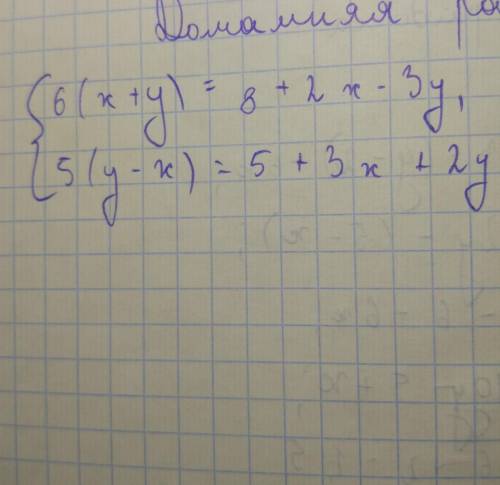 Домашняя
{6(x+y) = 8 + 2x - 3y,
5(y - x) = 5 + 3x + 2y